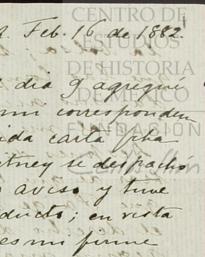 Feb. 16 de 1882.
dia 9 agregué
mi corresponden
ida carta fha
tney se despachó
aviso y tuve
ducto; en vista
es mi firme
CENTRO DE
ESTUDIOS
DE HISTORIA
DE MEXICO
FUNDACIÓN